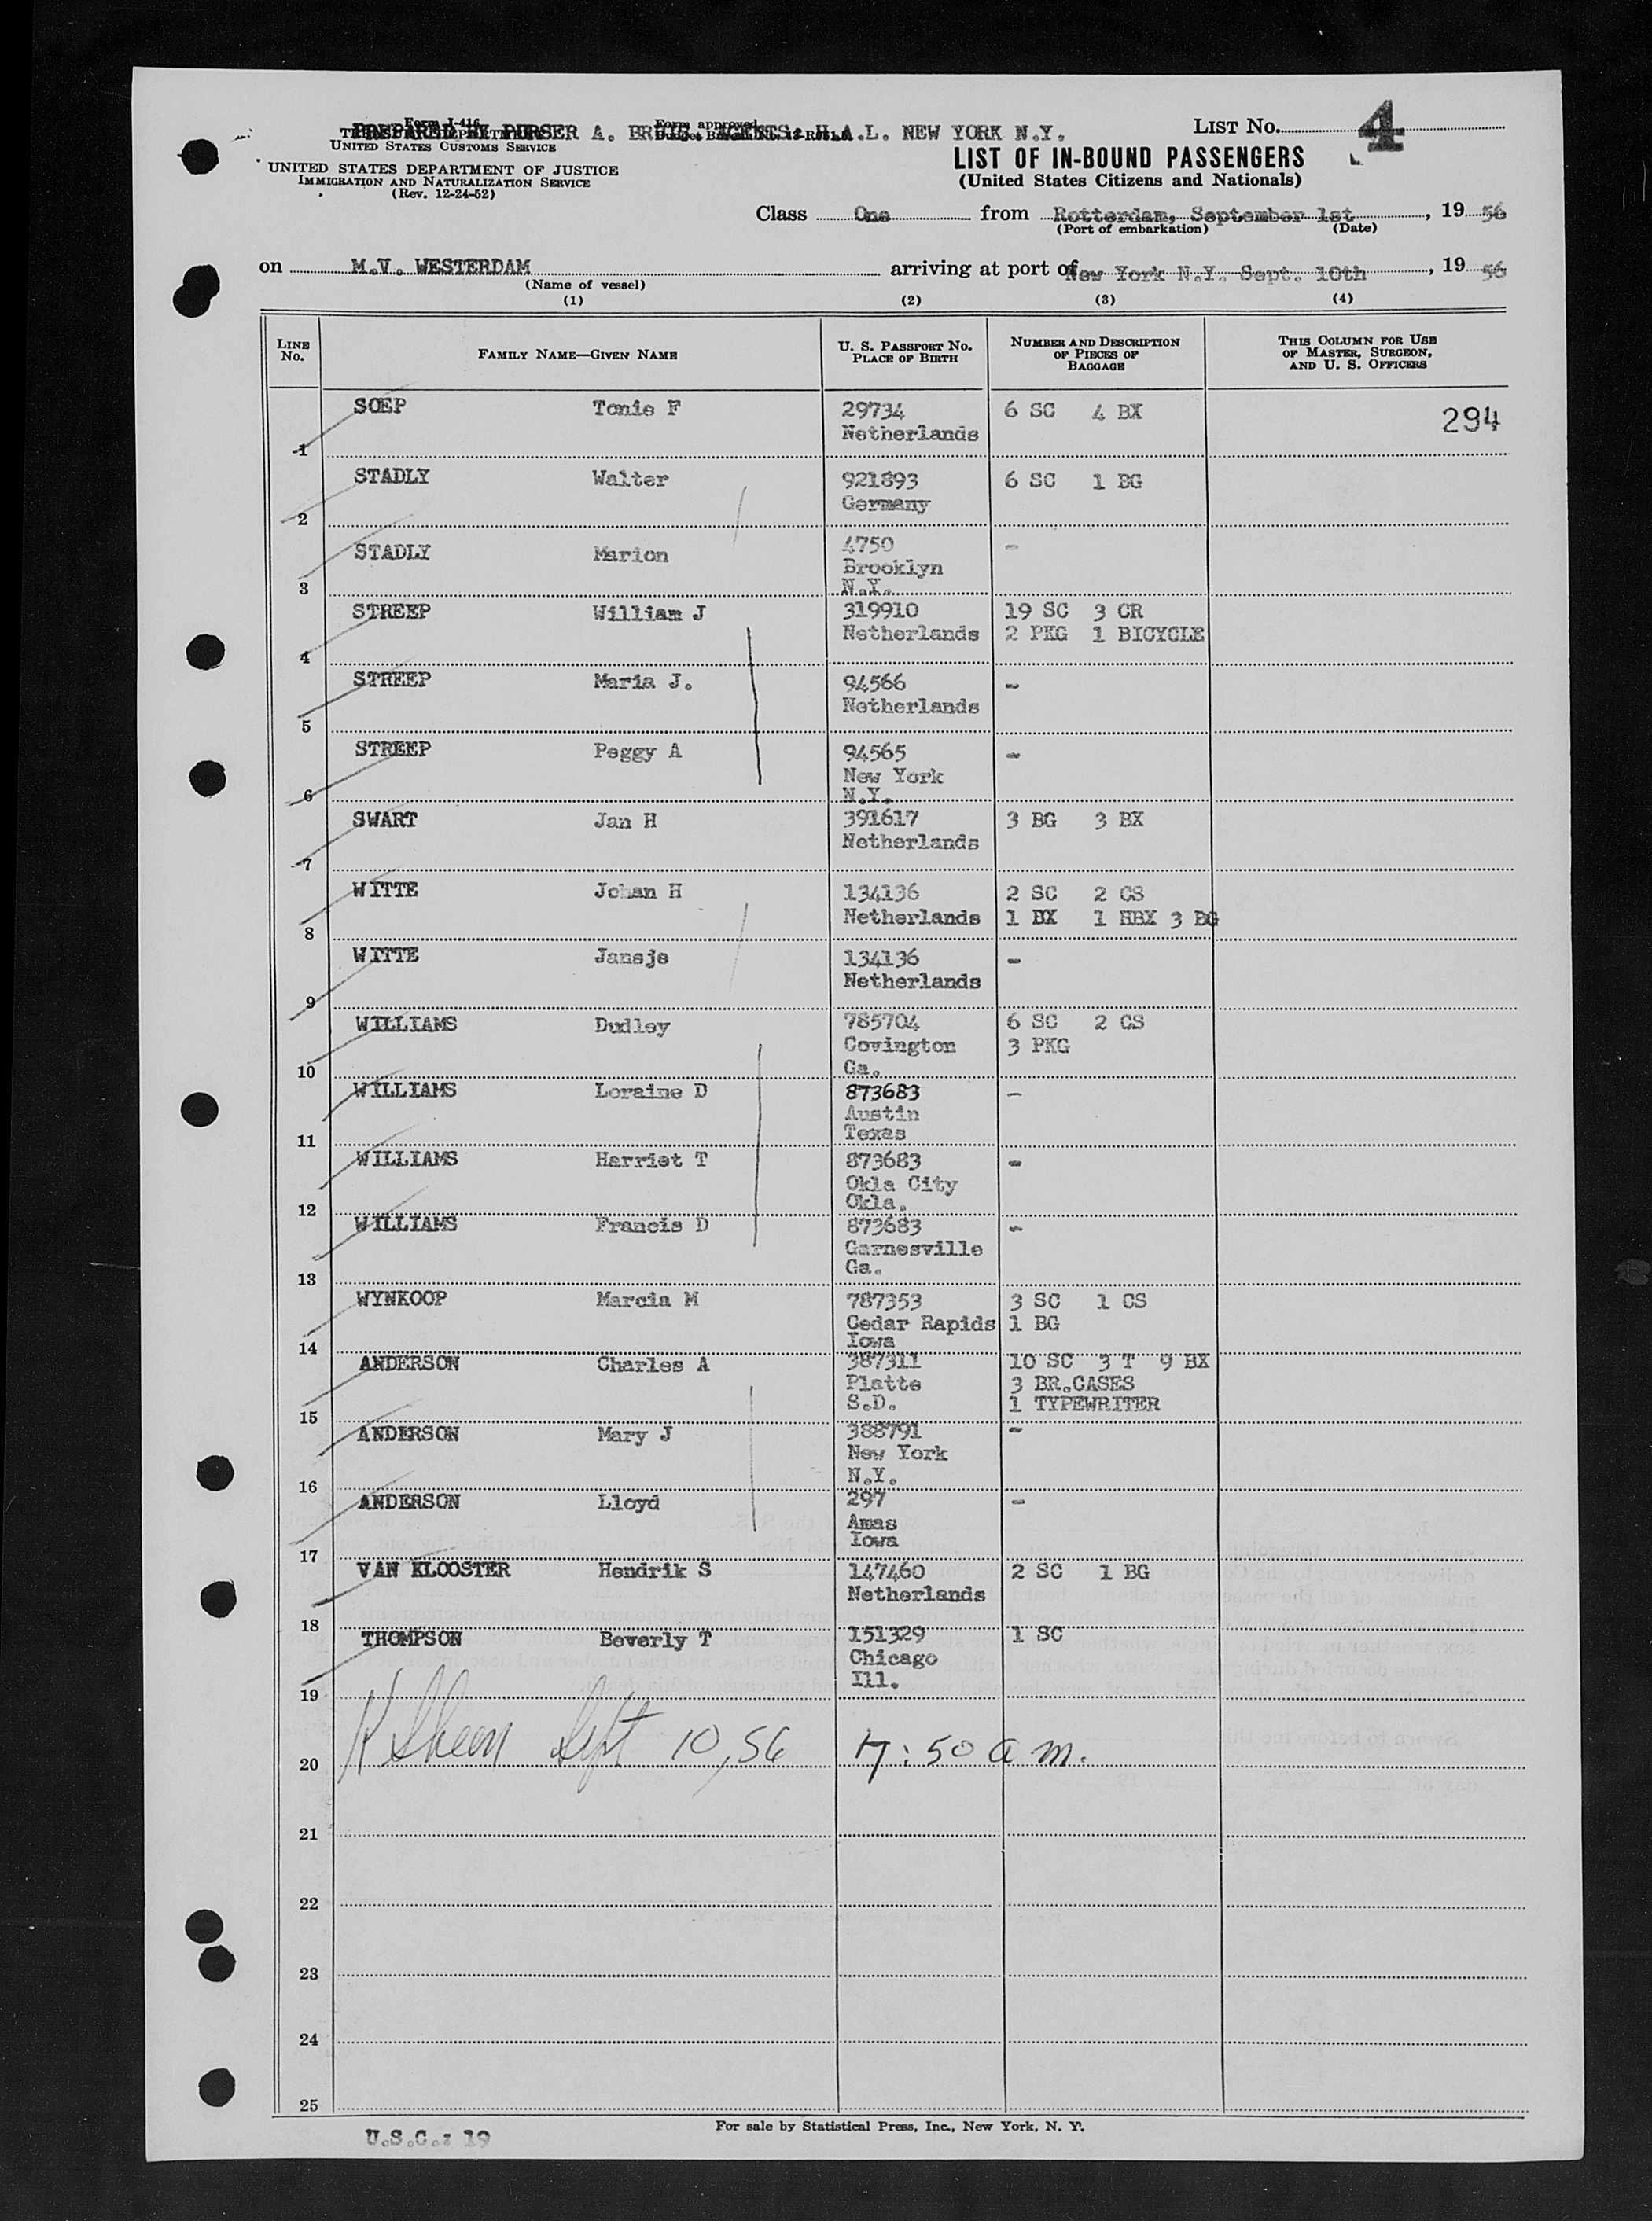 Form I-416
PREPARED BY PURSER A. BRUID AGENTS: H.A.L. NEW YORK N.Y.
Form approved
UNITED STATES CUSTOMS SERVICE
UNITED STATES DEPARTMENT OF JUSTICE
IMMIGRATION AND NATURALIZATION SERVICE
(Rev. 12-24-52)
LIST No. 4
LIST OF IN-BOUND PASSENGERS
(United States Citizens and Nationals)
Class One from Rotterdam, September 1st, 19 56
(Port of embarkation) (Date)
on M.V. WESTERDAM arriving at port of New York N.Y. Sept. 10th, 19 56
(Name of vessel)
(1) (2) (3) (4)
LINE No. FAMILY NAME—GIVEN NAME U. S. PASSPORT No. PLACE OF BIRTH NUMBER AND DESCRIPTION OF PIECES OF BAGGAGE THIS COLUMN FOR USE OF MASTER, SURGEON, AND U. S. OFFICERS
1 SOEP Tonie F 29734 6 SC 4 BX 294
Netherlands
2 STADLY Walter 921893 6 SC 1 BG
Germany
3 STADLY Marion 4750 -
Brooklyn
N.Y.
4 STREEP William J 319910 19 SC 3 CR
Netherlands 2 PKG 1 BICYCLE
5 STREEP Maria J. 94566 -
Netherlands
6 STREEP Peggy A 94565 -
New York
N.Y.
7 SWART Jan H 391617 3 BG 3 BX
Netherlands
8 WITTE Johan H 134136 2 SC 2 CS
Netherlands 1 BX 1 HBX 3 BG
9 WITTE Jansje 134136 -
Netherlands
10 WILLIAMS Dudley 785704 6 SC 2 CS
Covington 3 PKG
Ga.
11 WILLIAMS Loraine D 873683 -
Austin
Texas
12 WILLIAMS Harriet T 873683 -
Okla City
Okla.
13 WILLIAMS Francis D 873683 -
Garnesville
Ga.
14 WYNKOOP Marcia M 787353 3 SC 1 CS
Cedar Rapids 1 BG
Iowa
15 ANDERSON Charles A 387311 10 SC 3 T 9 BX
Platte 3 BR.CASES
S.D. 1 TYPEWRITER
16 ANDERSON Mary J 388791 -
New York
N.Y.
17 ANDERSON Lloyd 297 -
Amas
Iowa
18 VAN KLOOSTER Hendrik S 147460 2 SC 1 BG
Netherlands
19 THOMPSON Beverly T 151329 1 SC
Chicago
Ill.
20 Sept 10, 56 7:50 a m.
21
22
23
24
25
For sale by Statistical Press, Inc., New York, N. Y.
U.S.C.: 19